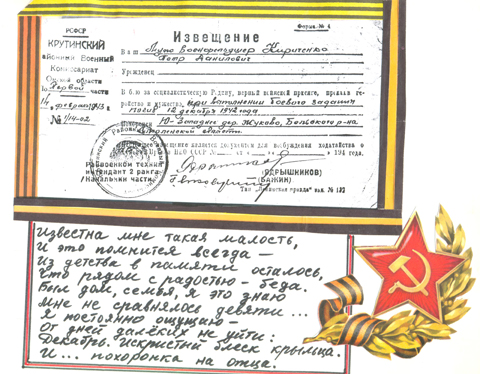 РСФСР
КРУТИНСКИЙ
Районный Военный
Комиссариат
Омской области
По Первой
части
14 февраля 1943
№ 1/14-02
Форма № 4
Извещение
Ваш муж Военфельдшер Кириченко
Петр Данилович
Уроженец
В бою за социалистическую Родину, верный воинской присяге, проявив ге-
ройство и мужество, при выполнении боевого задания
погиб 12 декабря 1942 года
Ю-Западнее дер. Жуково, Бельского р-на
Смоленской области
Настоящее извещение является документом для возбуждения ходатайства о
СССР №
194 года.
Райвоенком техник
интендант 2 ранга
Начальник части
(ОДРЫШНИКОВ)
(БАЖИН)
Тип. „Ленинская правда" зак. № 132
Известна мне такая малость,
И это помнится всегда —
Из детства в памяти осталось,
Что рядом с радостью — беда.
Был дом, семья, я это знаю
Мне не сравнялось девяти ...
Я постоянно ощущаю —
От дней далёких не уйти:
Декабрь. Искристый блеск крыльца.
И ... похоронка на отца.